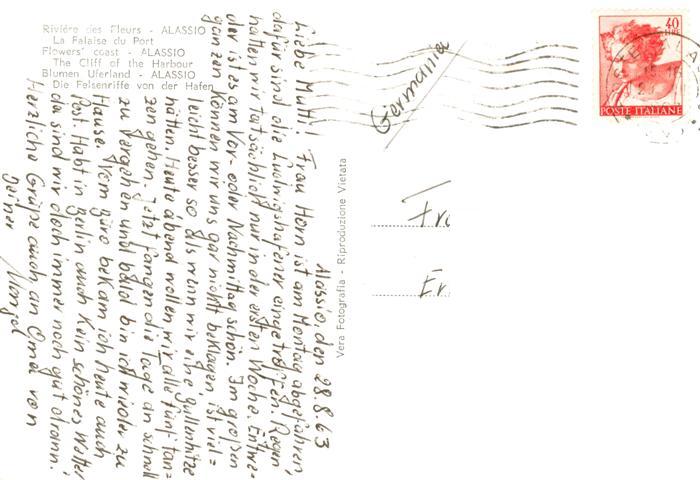 Riviére des Fleurs - ALASSIO
La Falaise du Port
Flowers' coast - ALASSIO
The Cliff of the Harbour
Blumen Uferland - ALASSIO
Die Felsenriffe von der Hafen
Alassio, den 28.8.63
Liebe Mutti! Frau Horn ist am Montag abgefahren,
dafür sind die Ludwigshafener eingetroffen. Regen
hatten wir tatsächlich nur in der ersten Woche. Entwe-
der ist es am Vor- oder Nachmittag schön. Im großen
ganzen können wir uns gar nicht beklagen, ist viel=
leicht besser so als wenn wir eine Bullenhitze
hätten. Heute abend wollen wir alle fünf tan-
zen gehen. Jetzt fangen die Tage an schnell
zu vergehen und bald bin ich wieder zu
Hause. Vom Büro bekam ich heute auch
Post. Habt in Berlin auch kein schönes Wetter
da sind wir doch immer noch gut dran!
Herzliche Grüße auch an Oma von
Deiner
Vera Fotografia - Riproduzione Vietata
Germania
40
LIRE
POSTE ITALIANE